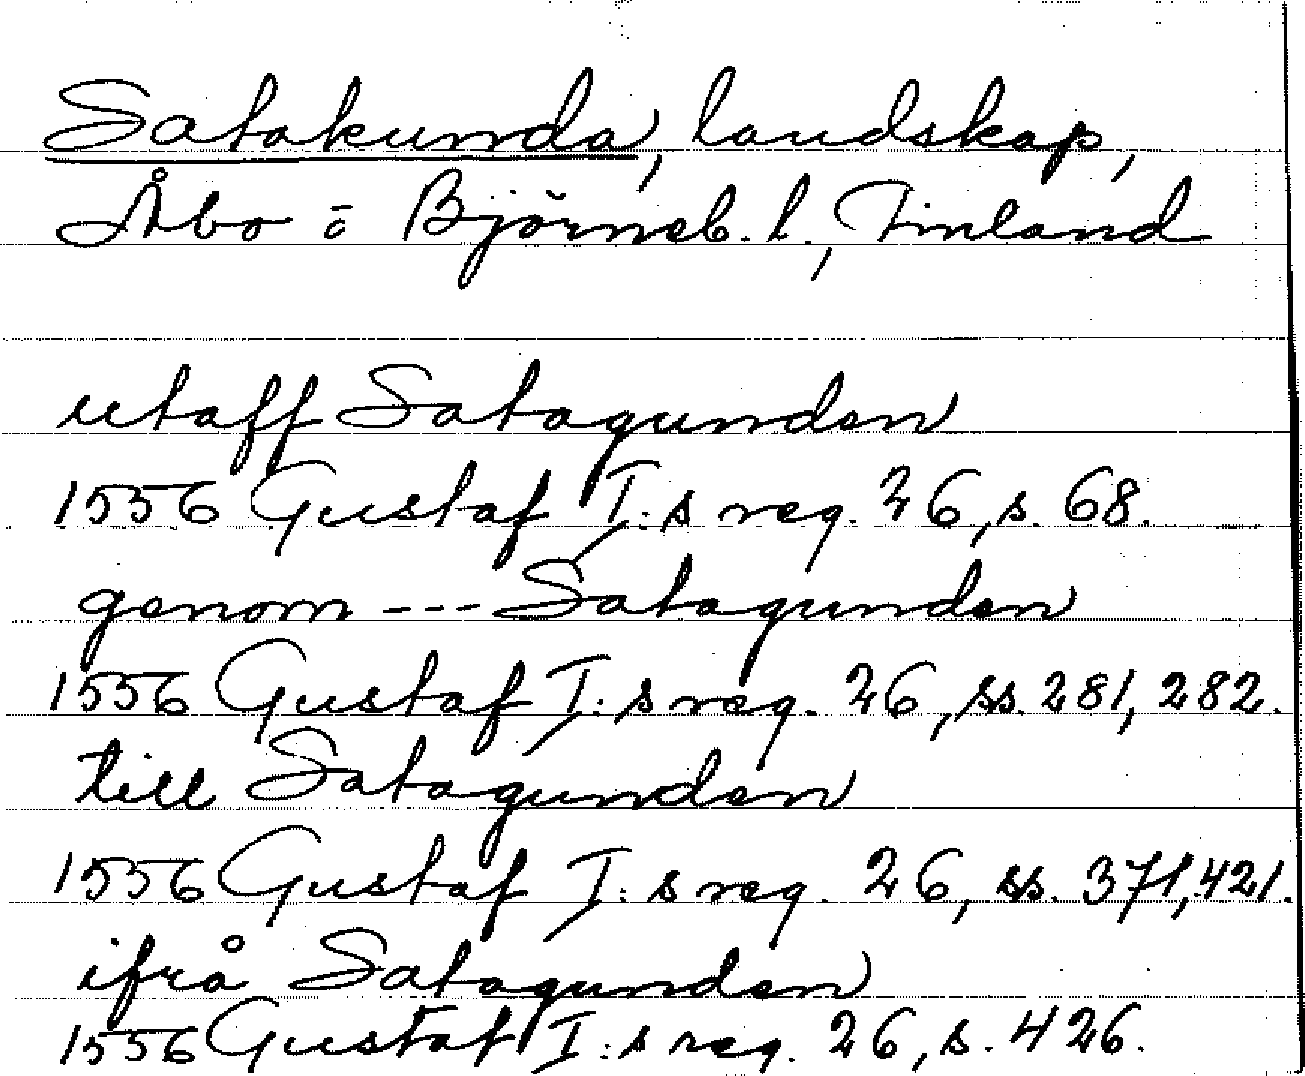 Satakunda, landskap,
Åbo o Björneb. l., Finland
utaff Satagunden
1556 Gustaf I:s reg. 26, s. 68.
genom --- Satagunden
1556 Gustaf I:s reg. 26, ss. 281, 282.
till Satagunden
1556 Gustaf I:s reg. 26, ss. 371, 421.
ifrå Satagunden
1556 Gustaf I:s reg. 26, s. 426.